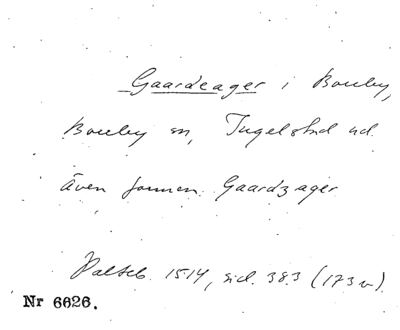 Gaardeager i Bouby,
Bouby sn, Ingelstad hd.
Även formen Gaardzager
Palteb. 1514, sid. 383 (173 v).
Nr 6626.